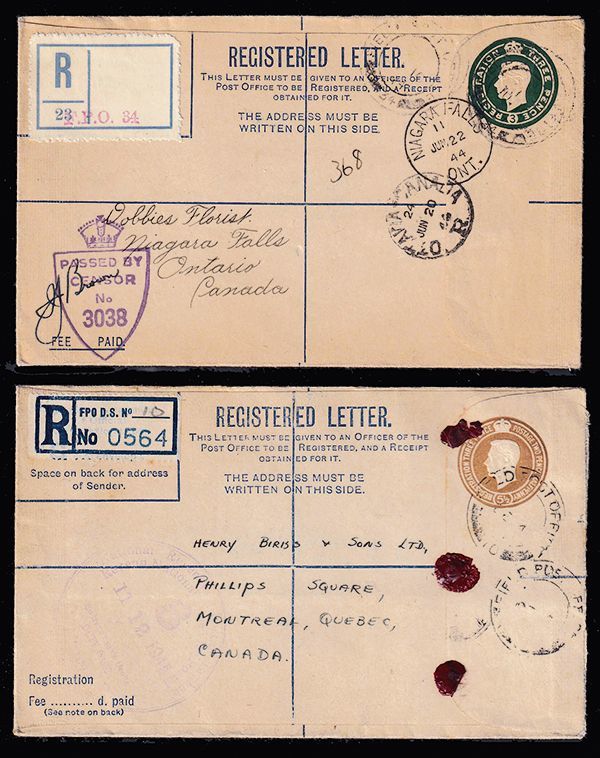 R
23
F.P.O. 34
REGISTERED LETTER.
THIS LETTER MUST BE GIVEN TO AN OFFICER OF THE
POST OFFICE TO BE REGISTERED, AND A RECEIPT
OBTAINED FOR IT.
THE ADDRESS MUST BE
WRITTEN ON THIS SIDE.
REGISTRATION THREE PENCE (3)
NIAGARA FALLS
11
JUN 22
44
ONT.
368
OTTAWA CANADA
24
JUN 20
R
Dobbies Florist.
Niagara Falls
Ontario
Canada
PASSED BY
CENSOR
No
3038
FEE PAID
R
FPO D.S. No 10
No 0564
REGISTERED LETTER.
THIS LETTER MUST BE GIVEN TO AN OFFICER OF THE
POST OFFICE TO BE REGISTERED, AND A RECEIPT
OBTAINED FOR IT.
THE ADDRESS MUST BE
WRITTEN ON THIS SIDE.
Space on back for address
of Sender.
5½
HENRY BIRKS & SONS LTD,
PHILLIPS SQUARE,
MONTREAL, QUEBEC,
CANADA.
Registration
Fee .......... d. paid
(See note on back)